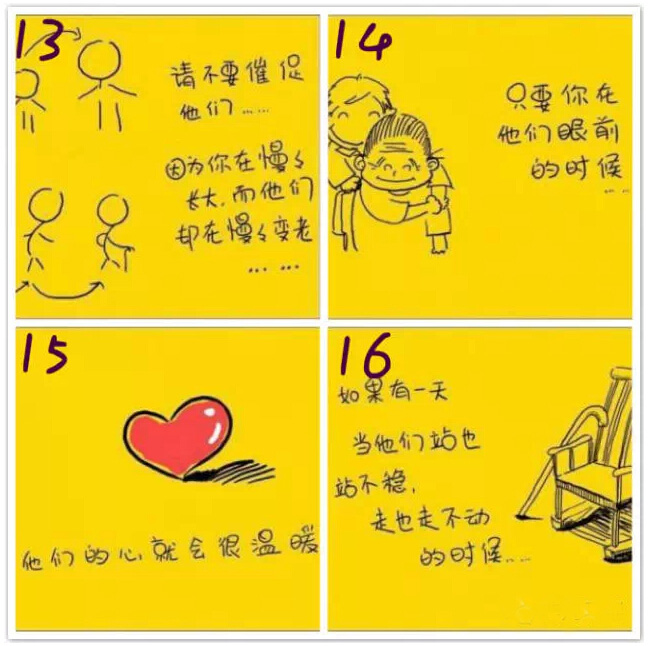 13
请不要催促
他们……
因为你在慢々
长大,而他们
却在慢々变老
……
14
只要你在
他们眼前
的时候
……
15
他们的心就会很温暖
16
如果有一天
当他们站也
站不稳,
走也走不动
的时候……